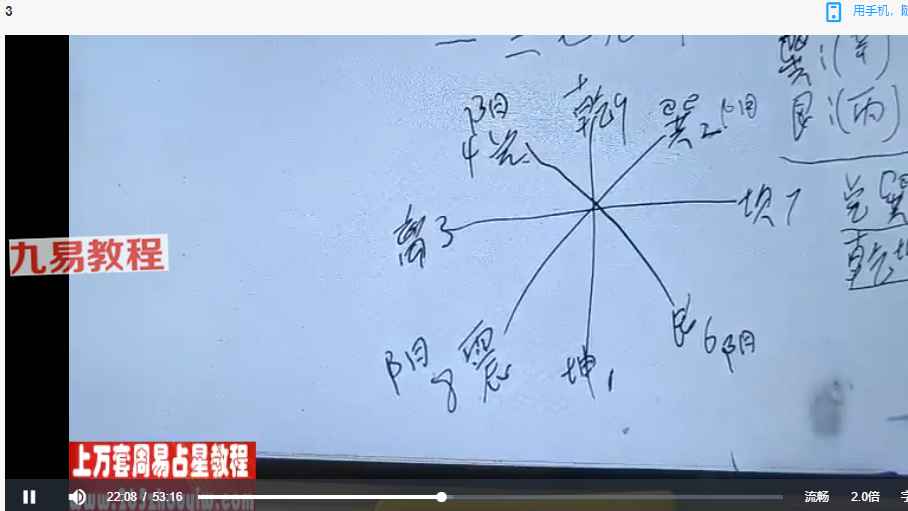 3
用手机，
巽：(辛)
艮：(丙)
阳
4兑
乾9
巽2 阴
离3
坎7
兑巽
乾坤
阳
8震
坤1
艮6阴
九易教程
上万套周易占星教程
22:08 / 53:16
流畅
2.0倍